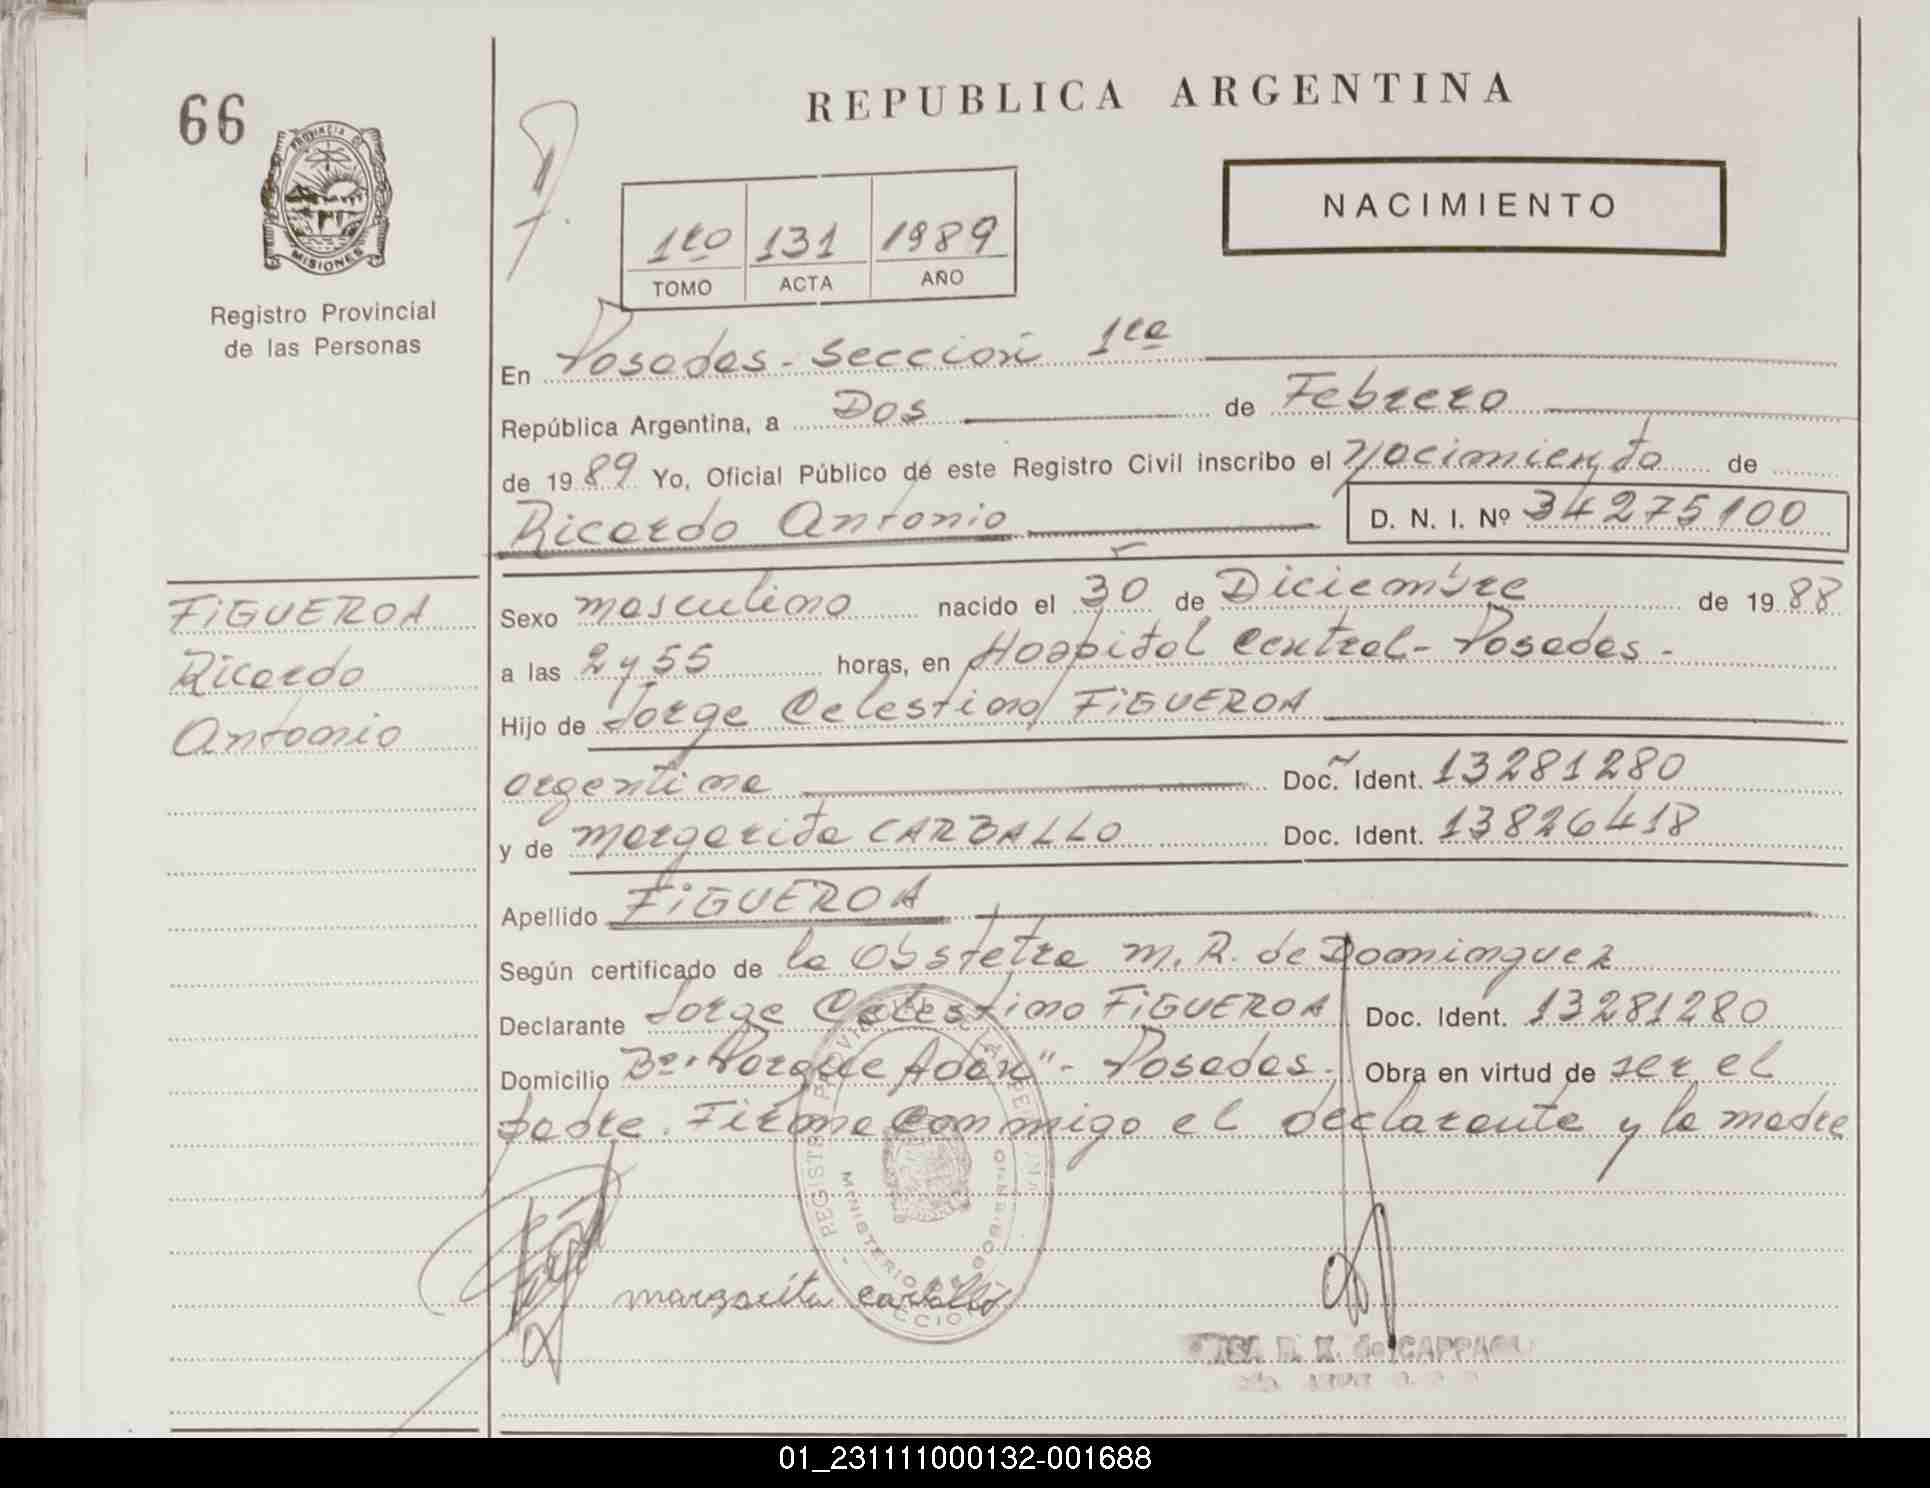 66
REPUBLICA ARGENTINA
PROVINCIA DE
MISIONES
Registro Provincial
de las Personas
NACIMIENTO
1ro 131 1989
TOMO ACTA AÑO
En Posadas - Sección 1ra
República Argentina, a Dos de Febrero
de 1989 Yo, Oficial Público de este Registro Civil inscribo el Nacimiento de
Ricardo Antonio D. N. I. Nº 34275100
FiGUEROA
Ricardo
Antonio
Sexo masculino nacido el 30 de Diciembre de 1988
a las 2 y 55 horas, en Hospital Central - Posadas -
Hijo de Jorge Celestino FiGUEROA
argentina Doc. Ident. 13281280
y de Margarita CARBALLO Doc. Ident. 13826418
Apellido FiGUEROA
Según certificado de la Obstetra M. R. de Dominguez
Declarante Jorge Celestino FiGUEROA Doc. Ident. 13281280
Domicilio Bº "Parque Adan" - Posadas - Obra en virtud de ser el
padre. Firma conmigo el declarante y la madre
margarita carballo
de CAPPAGLI
01_231111000132-001688